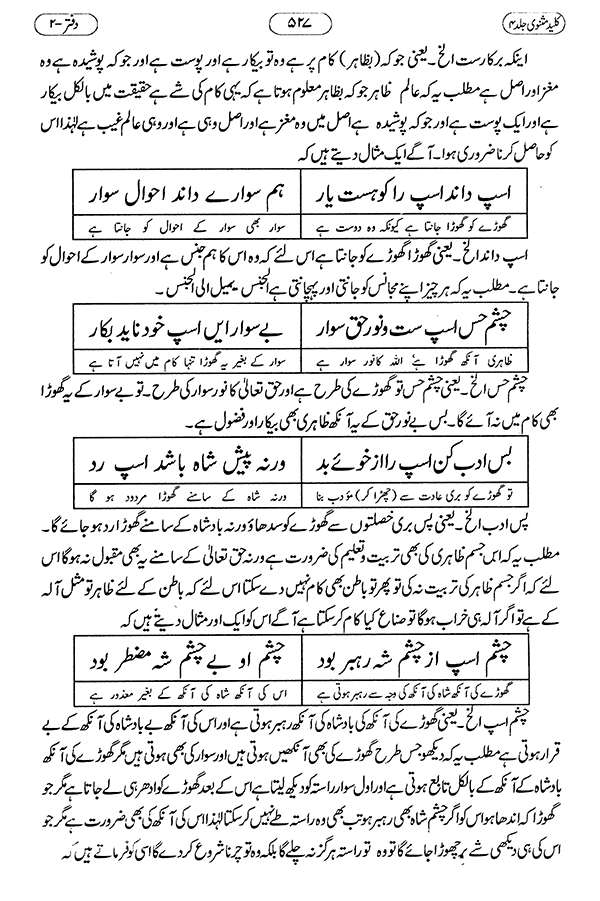 کلید مثنوی جلد ۴ ۵۲۷ دفتر-۲
اینکہ برکارست الخ۔ یعنی جو کہ (بظاہر) کام پر ہے وہ تو بیکار ہے اور پوست ہے اور جو کہ پوشیدہ ہے وہ
مغز اور اصل ہے مطلب یہ کہ عالم ظاہر جو کہ بظاہر معلوم ہوتا ہے کہ یہی کام کی شے ہے حقیقت میں بالکل بیکار
ہے اور ایک پوست ہے اور جو کہ پوشیدہ ہے اصل میں وہ مغز ہے اور اصل وہی ہے اور وہی عالم غیب ہے لہٰذا اس
کو حاصل کرنا ضروری ہوا۔ آگے ایک مثال دیتے ہیں کہ
اسپ داند اسپ را کوہست یار ہم سوارے داند احوال سوار
گھوڑے کو گھوڑا جانتا ہے کیونکہ وہ دوست ہے سوار بھی سوار کے احوال کو جانتا ہے
اسپ داند الخ۔ یعنی گھوڑا گھوڑے کو جانتا ہے اس لئے کہ وہ اس کا ہم جنس ہے اور سوار سوار کے احوال کو
جانتا ہے۔ مطلب یہ کہ ہر چیز اپنے مجانس کو جانتی اور پہچانتی ہے الجنس یمیل الی الجنس۔
چشم حس اسپ ست و نور حق سوار بے سوار ایں اسپ خود ناید بکار
ظاہری آنکھ گھوڑا ہے اللہ کا نور سوار ہے سوار کے بغیر یہ گھوڑا تنہا کام میں نہیں آتا ہے
چشم حس الخ۔ یعنی چشم حس تو گھوڑے کی طرح ہے اور حق تعالیٰ کا نور سوار کی طرح۔ تو بے سوار کے یہ گھوڑا
بھی کام میں نہ آئے گا۔ بس بے نور حق کے یہ آنکھ ظاہری بھی بیکار اور فضول ہے۔
بس ادب کن اسپ را از خوئے بد ورنہ پیش شاہ باشد اسپ رد
تو گھوڑے کو بری عادت سے (چھڑا کر) مؤدب بنا ورنہ شاہ کے سامنے گھوڑا مردود ہو گا
پس ادب الخ۔ یعنی پس بری خصلتوں سے گھوڑے کو سدھاؤ ورنہ بادشاہ کے سامنے گھوڑا رد ہو جائے گا۔
مطلب یہ کہ اس جسم ظاہری کی بھی تربیت و تعلیم کی ضرورت ہے ورنہ حق تعالیٰ کے سامنے یہ بھی مقبول نہ ہوگا اس
لئے کہ اگر جسم ظاہر کی تربیت نہ کی تو پھر تو باطن بھی کام نہیں دے سکتا اس لئے کہ باطن کے لئے ظاہر تو مثل آلہ
کے ہے تو اگر آلہ ہی خراب ہوگا تو صناع کیا کام کر سکتا ہے آگے اس کو ایک اور مثال دیتے ہیں کہ
چشم اسپ از چشم شہ رہبر بود چشم او بے چشم شہ مضطر بود
گھوڑے کی آنکھ شاہ کی آنکھ کی وجہ سے رہبر ہوتی ہے اس کی آنکھ شاہ کی آنکھ کے بغیر معذور ہے
چشم اسپ الخ۔ یعنی گھوڑے کی آنکھ کی بادشاہ کی آنکھ رہبر ہوتی ہے اور اس کی آنکھ بے بادشاہ کی آنکھ کے بے
قرار ہوتی ہے مطلب یہ کہ دیکھو جس طرح گھوڑے کی بھی آنکھیں ہوتی ہیں اور سوار کی بھی ہوتی ہیں مگر گھوڑے کی آنکھ
بادشاہ کے آنکھ کے بالکل تابع ہوتی ہے اور اول سوار راستہ کو دیکھ لیتا ہے اس کے بعد گھوڑے کو ادھر ہی لے جاتا ہے مگر جو
گھوڑا کہ اندھا ہو اس کو اگر چشم شاہ بھی رہبر ہو تب بھی وہ راستہ طے نہیں کر سکتا لہٰذا اس کی آنکھ کی بھی ضرورت ہے مگر جو
اس کی ہی دیکھی شے پر چھوڑا جائے گا تو وہ تو راستہ ہرگز نہ چلے گا بلکہ وہ تو چرنا شروع کر دے گا اسی کو فرماتے ہیں کہ